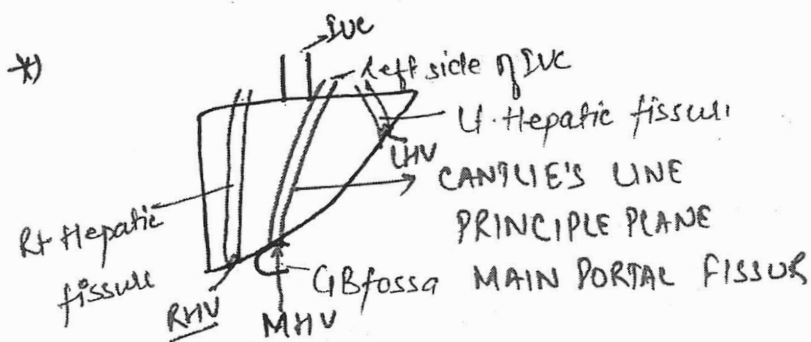 *)
IVC
Left side of IVC
Lt. Hepatic fissure
LHV
CANTLIE'S LINE
PRINCIPLE PLANE
MAIN PORTAL FISSUR
Rt Hepatic
fissure
RHV
MHV
GB fossa